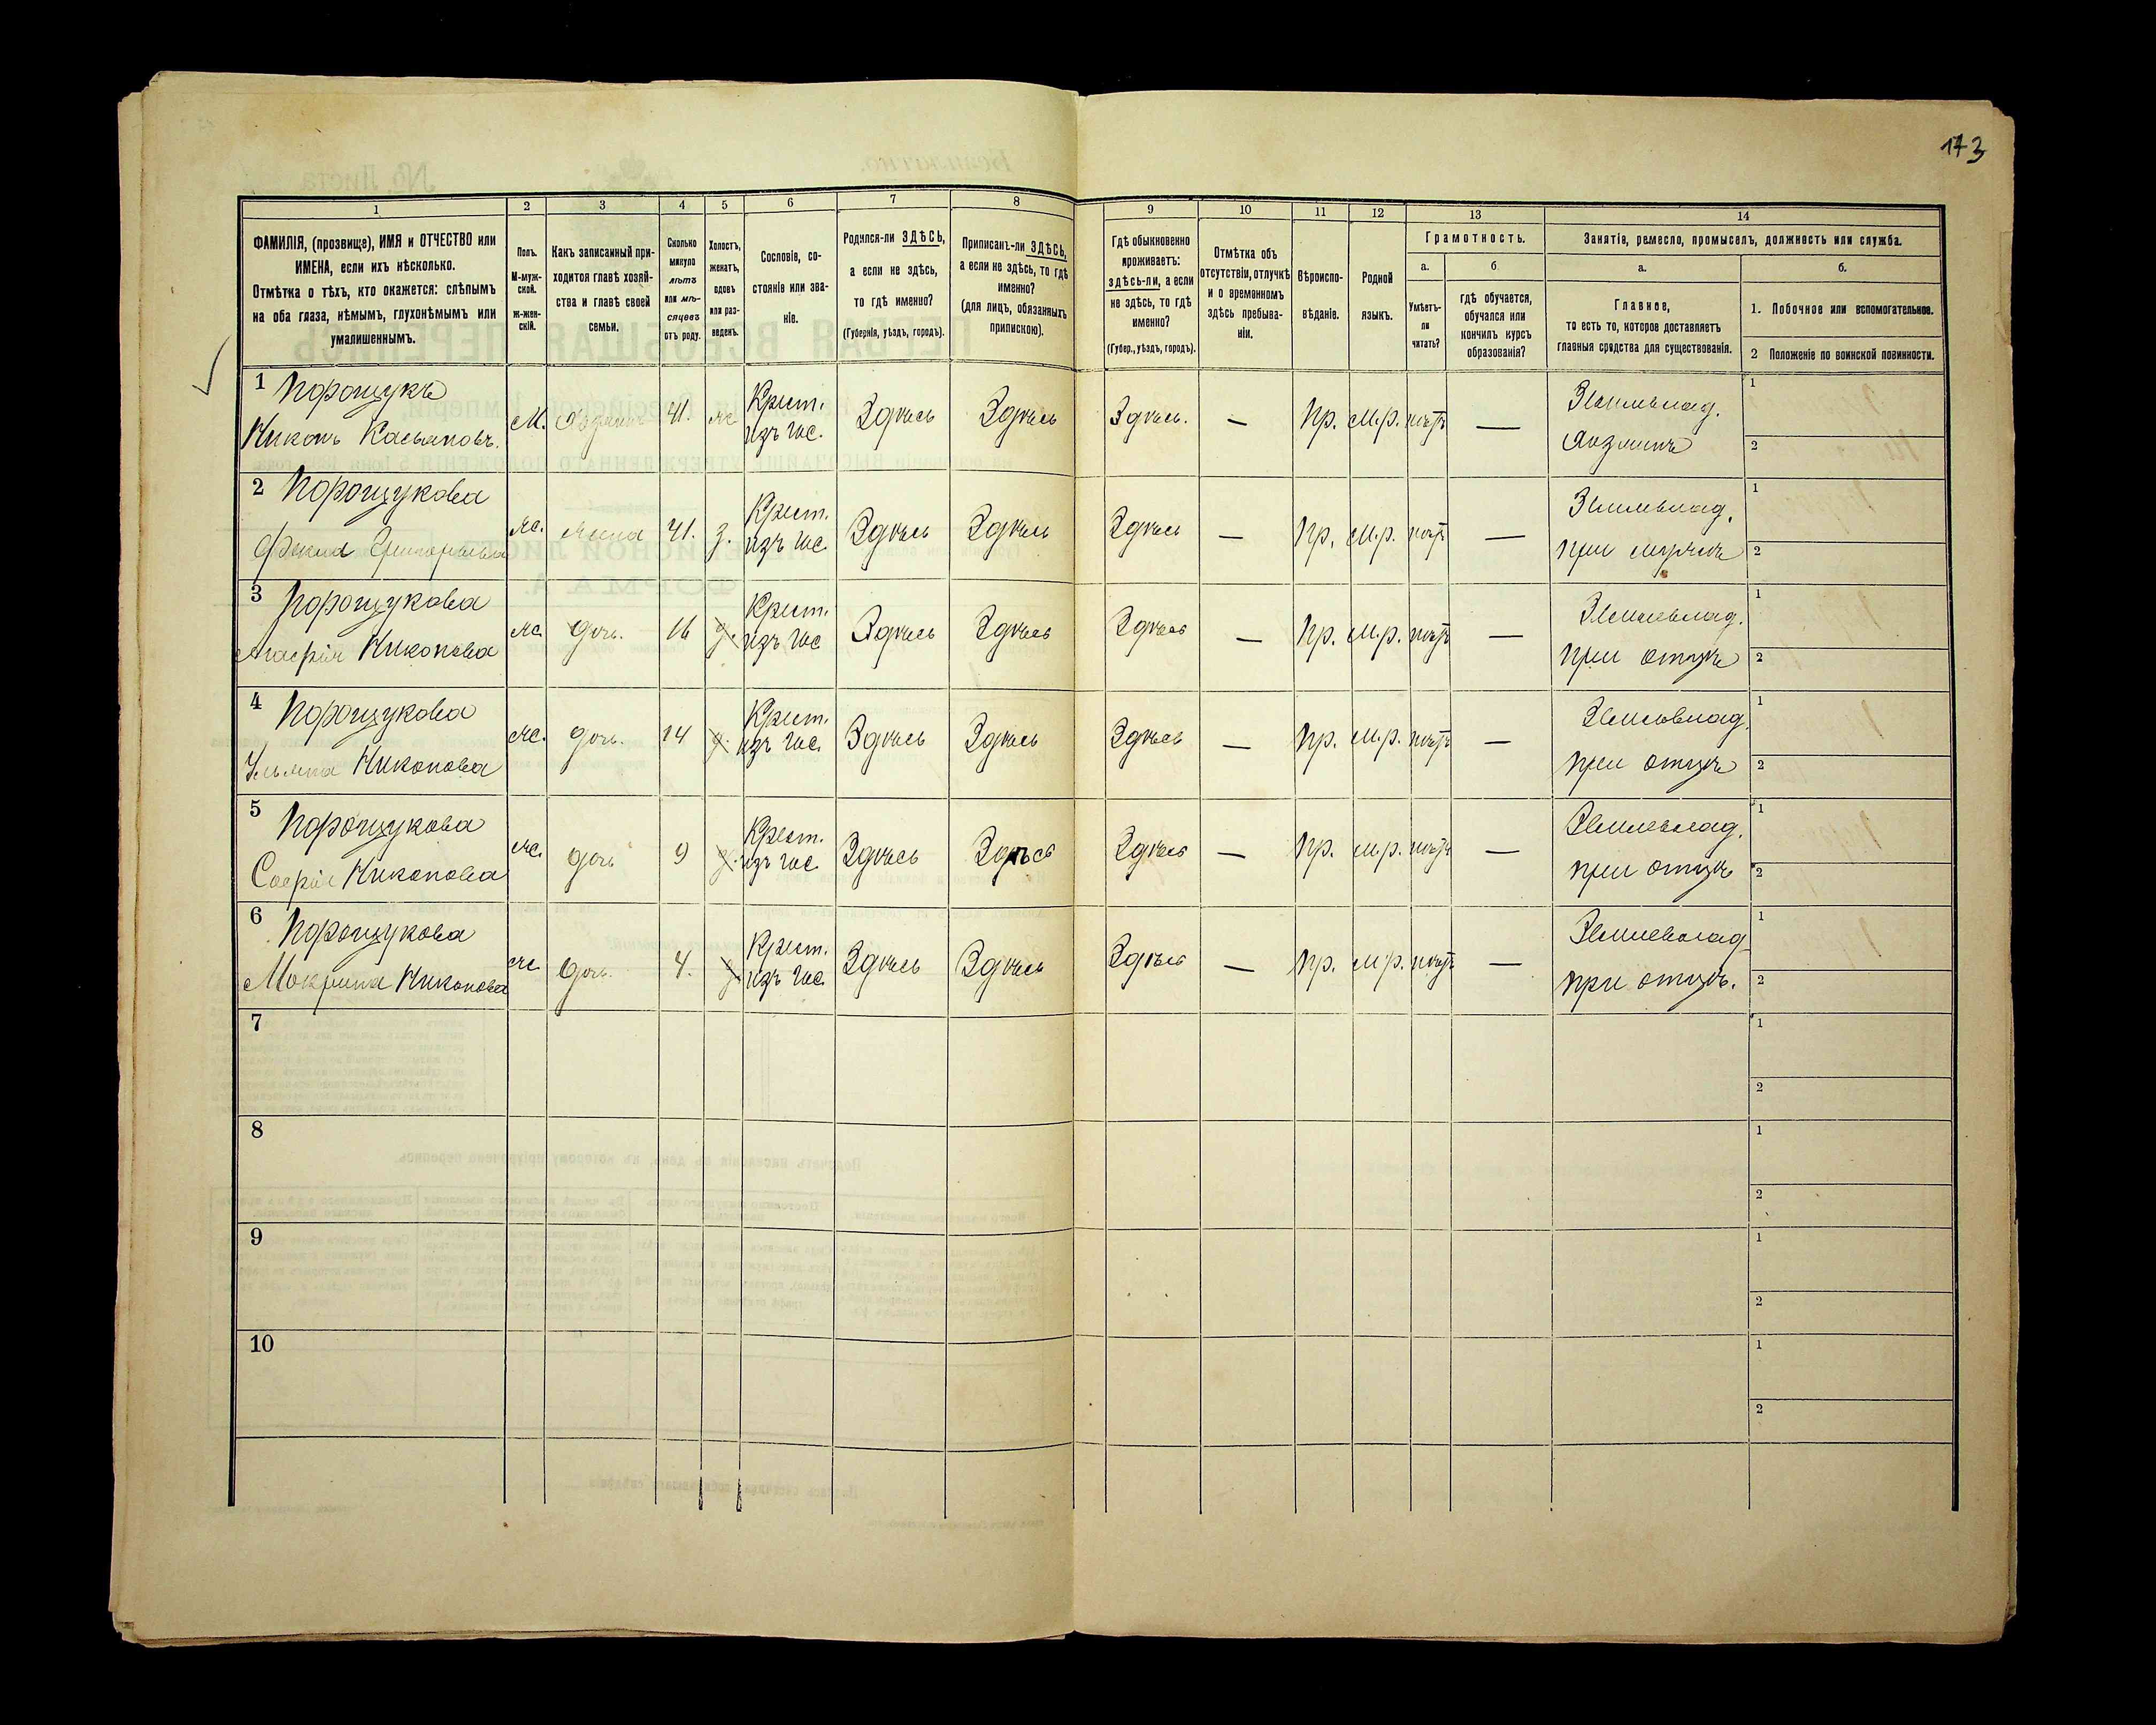 173
1
2
3
4
5
6
7
8
9
10
11
12
13
14
ФАМИЛІЯ, (прозвище), ИМЯ и ОТЧЕСТВО или
ИМЕНА, если ихъ нѣсколько.
Отмѣтка о тѣхъ, кто окажется: слѣпымъ
на оба глаза, нѣмымъ, глухонѣмымъ или
умалишеннымъ.
Полъ.
М-муж-
ской.
Ж-жен-
скій.
Какъ записанный при-
ходится главѣ хозяй-
ства и главѣ своей
семьи.
Сколько
минуло
лѣтъ
или мѣ-
сяцевъ
отъ роду.
Холостъ,
женатъ,
вдовъ
или раз-
веденъ.
Сословіе, со-
стояніе или зва-
ніе.
Родился-ли ЗДѢСЬ,
а если не здѣсь,
то гдѣ именно?
(Губернія, уѣздъ, городъ).
Приписанъ-ли ЗДѢСЬ,
а если не здѣсь, то гдѣ
именно?
(для лицъ, обязанныхъ
припискою).
Гдѣ обыкновенно
проживаетъ:
здѣсь-ли, а если
не здѣсь, то гдѣ
именно?
(Губер., уѣздъ, городъ).
Отмѣтка объ
отсутствіи, отлучкѣ
и о временномъ
здѣсь пребыва-
ніи.
Вѣроиспо-
вѣданіе.
Родной
языкъ.
Грамотность.
а.
Умѣетъ-
ли
читать?
б
гдѣ обучается,
обучался или
кончилъ курсъ
образованія?
Занятіе, ремесло, промыселъ, должность или служба.
а.
Главное,
то есть то, которое доставляетъ
главныя средства для существованія.
б.
1. Побочное или вспомогательное.
2 Положеніе по воинской повинности.
1 Порощукъ
Никонъ Касьяновъ.
М. Хозяинъ 41. ж. Крест. изъ гос. Здѣсь Здѣсь Здѣсь. — Пр. М.р. нѣтъ — Земмлевлад. хозяинъ 1 2
2 Порощукова
Фекла Григорьева
ж. жена 41. з. Крест. изъ гос. Здѣсь Здѣсь Здѣсь — Пр. м.р. нѣтъ — Землевлад. при мужѣ 1 2
3 Порощукова
Агафія Никонова
ж. дочь. 16 д. Крест. изъ гос Здѣсь Здѣсь Здѣсь — Пр. м.р. нѣтъ — Землевлад. при отцѣ 1 2
4 Порощукова
Ульяна Никонова
ж. дочь. 14 д. Крест. изъ гос. Здѣсь Здѣсь Здѣсь — Пр. м.р. нѣтъ — Землевлад. при отцѣ 1 2
5 Порощукова
Софія Никонова
ж. дочь 9 д. Крест. изъ гос. Здѣсь Здѣсь Здѣсь — Пр. м.р. нѣтъ — Землевлад. при отцѣ 1 2
6 Порощукова
Мокрина Никонова
ж. дочь. 4. д. Крест. изъ гос. Здѣсь Здѣсь Здѣсь — Пр. м.р. нѣтъ — Землевлад при отцѣ. 1 2
7 1 2
8 1 2
9 1 2
10 1 2